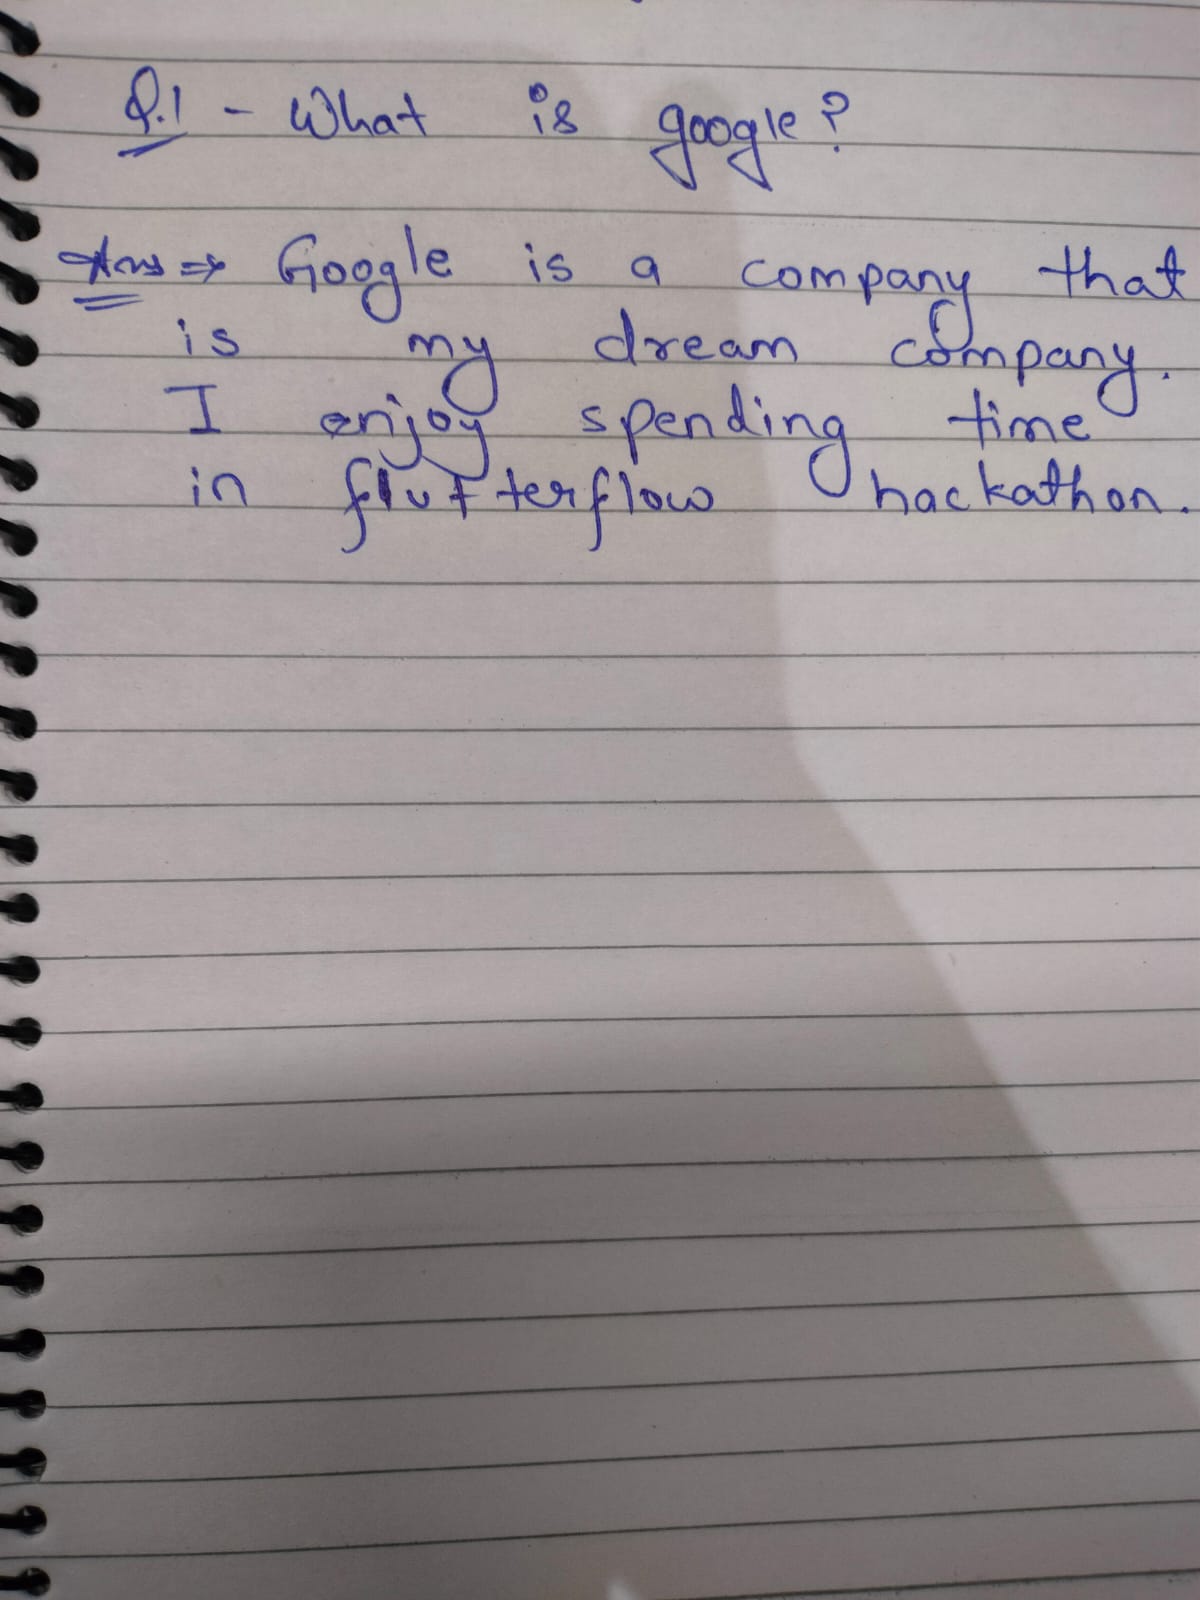 Q.1 - What is google?
Ans ⇒ Google is a company that
is my dream company.
I enjoy spending time
in flutterflow hackathon.